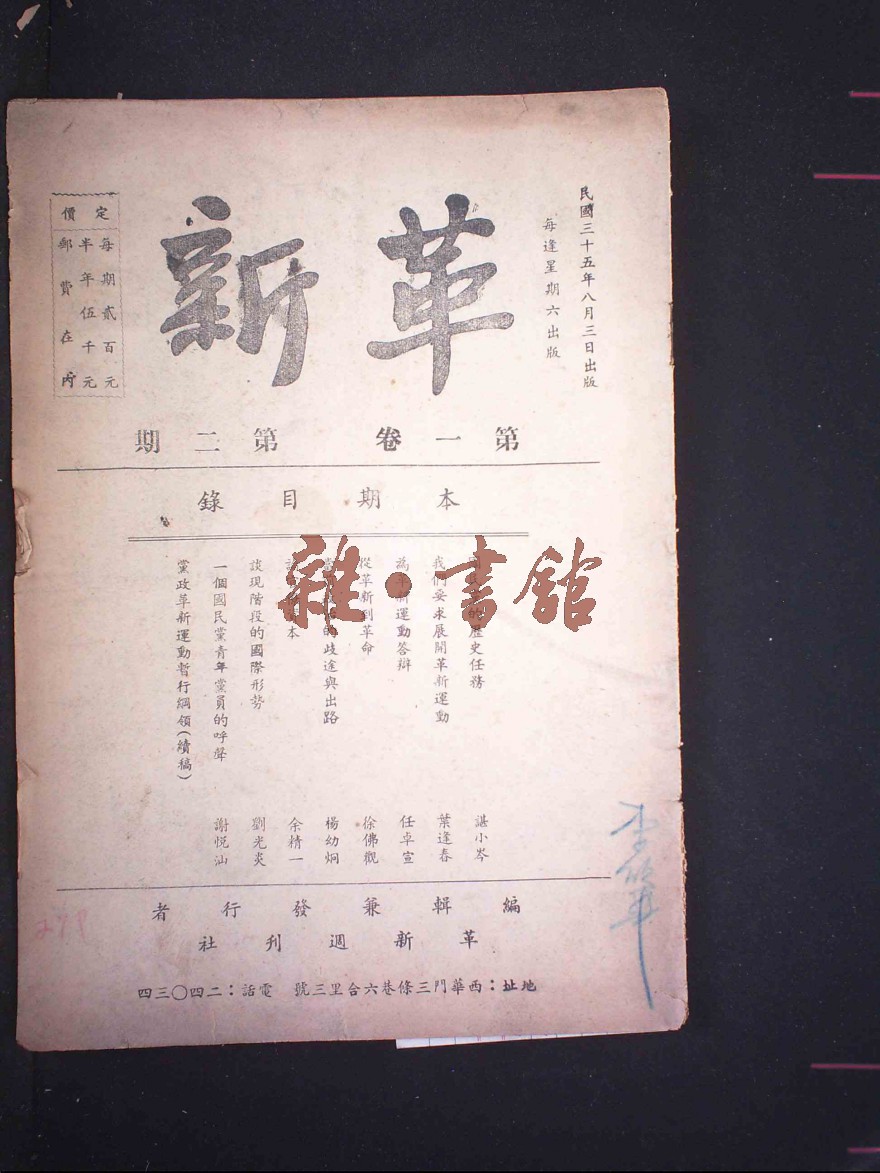 民國三十五年八月三日出版
每逢星期六出版
革新
定價
每期貳百元
半年伍千元
郵費在內
第一卷 第二期
本期目錄
的歷史任務 諶小岑
我們要求展開革新運動 葉逢春
為革新運動答辯 任卓宣
從革新到革命 徐佛觀
的歧途與出路 楊幼炯
本 余精一
談現階段的國際形勢 劉光炎
一個國民黨青年黨員的呼聲 謝悅汕
黨政革新運動暫行綱領(續稿)
雜·書館
編輯兼發行者
革新週刊社
地址：西華門三條巷六合里三號 電話：二四〇三四